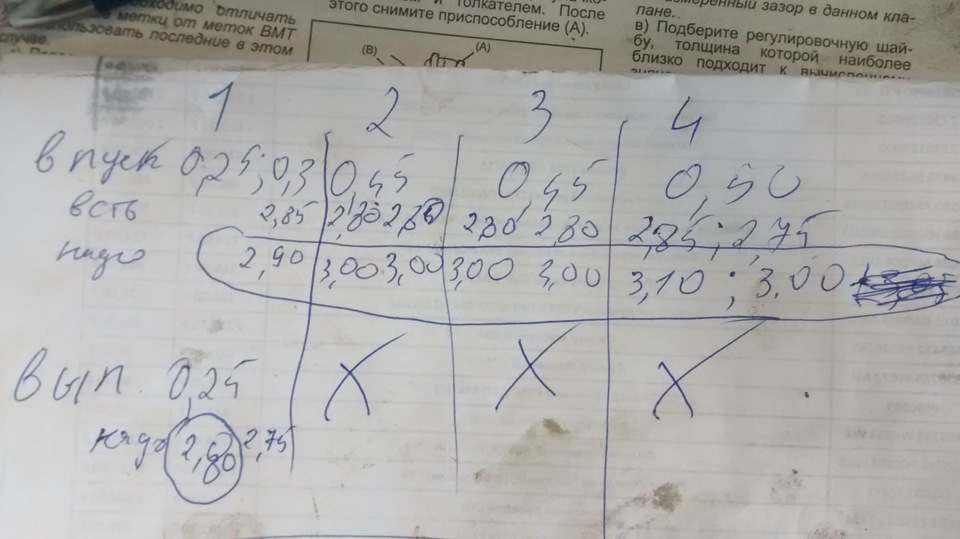 обходимо отличать
метки от меток ВМТ
пользовать последние в этом
случае.
и толкателем. После
этого снимите приспособление (А).
(В) (А)
измеренный зазор в данном кла-
пане.
в) Подберите регулировочную шай-
бу, толщина которой наиболее
близко подходит к вычисленному
1 2 3 4
впуск 0,25; 0,3 0,45 0,45 0,50
есть 2,85 2,80 2,80 2,80 2,80 2,85; 2,75
надо 2,90 3,00 3,00 3,00 3,00 3,10; 3,00
вып. 0,25 X X X
надо 2,80 2,75